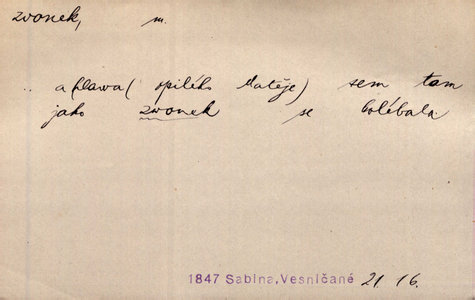 zvonek, m.
.. a hlawa (opilého Matěje) sem tam
jako zvonek se kolébala.
1847 Sabina, Vesničané 21 16.